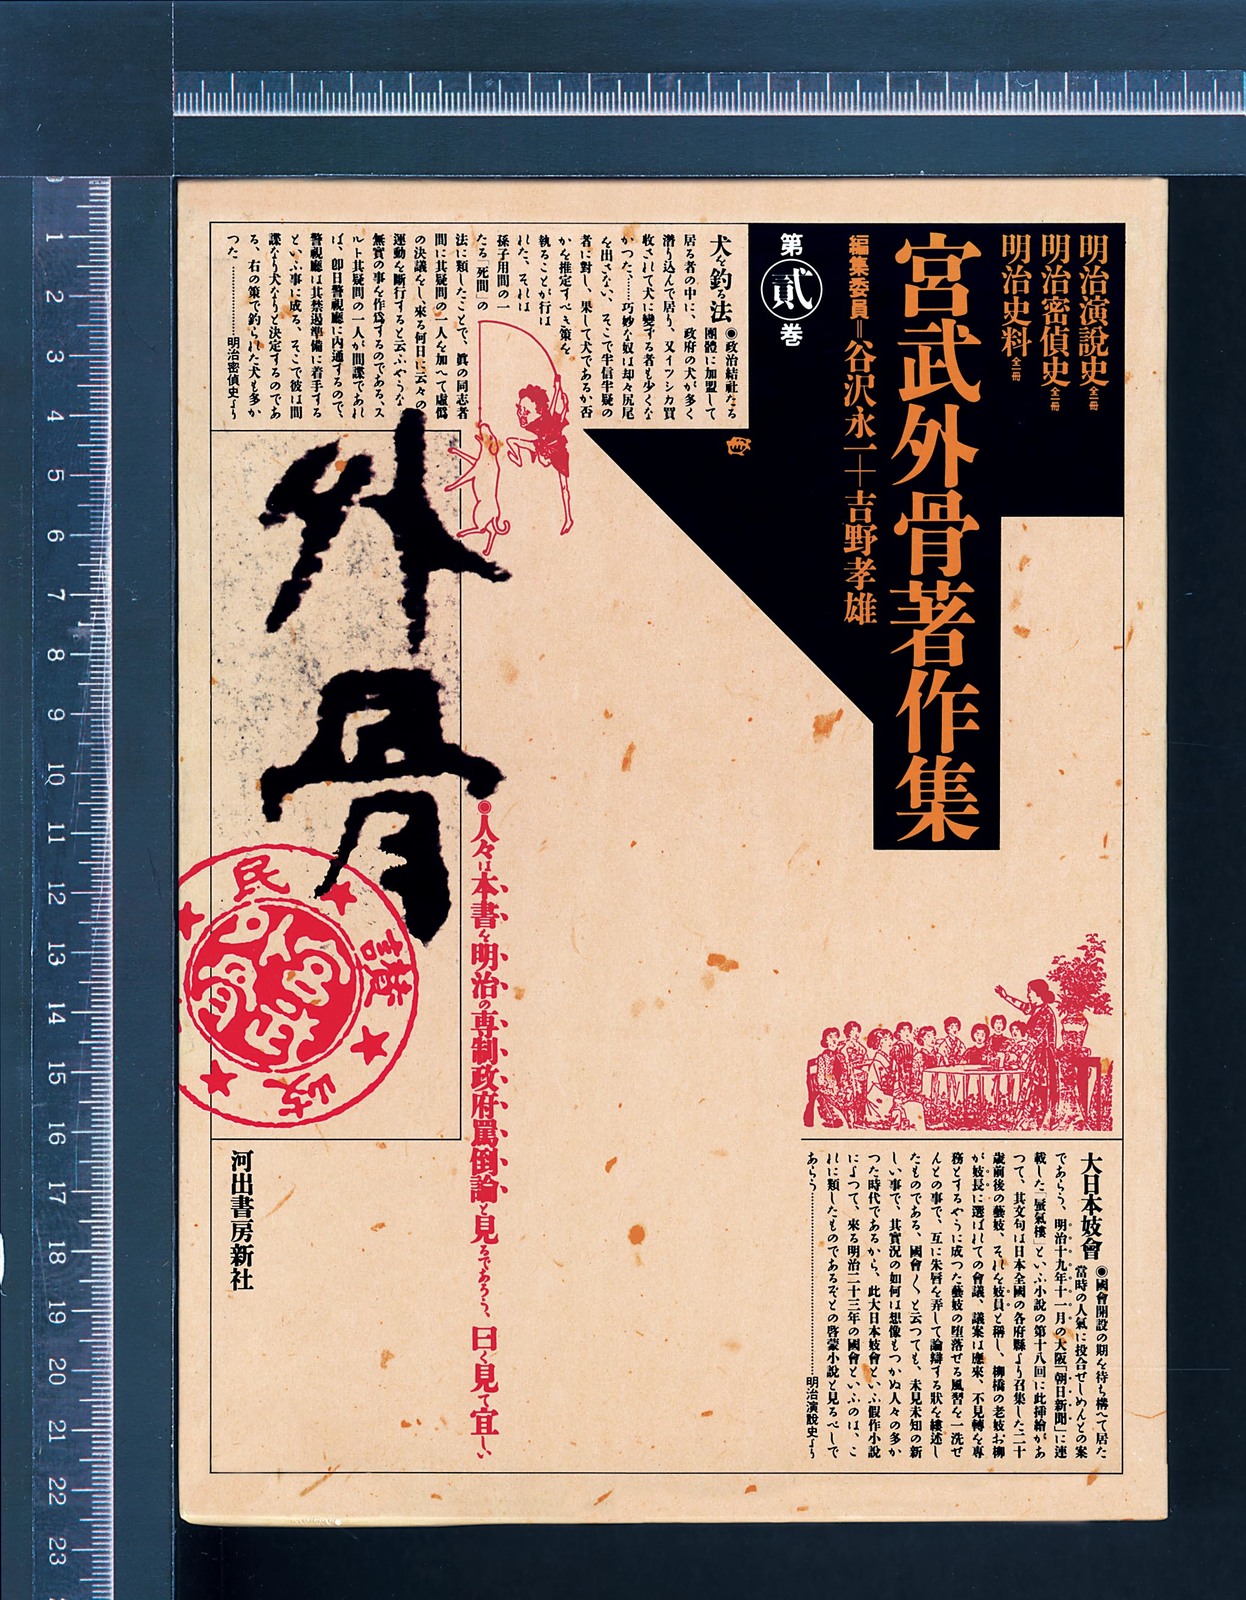 明治演説史 全一冊
明治密偵史 全一冊
明治史料 全一冊
宮武外骨著作集
編集委員＝谷沢永一＋吉野孝雄
第貳巻
犬を釣る法
◉政治結社たる
團體に加盟して
居る者の中に、政府の犬が多く
潜り込んで居り、又イツシカ買
收されて犬に變ずる者も少くな
かつた、……巧妙な奴は却々尻尾
を出さない、そこで半信半疑の
者に對し、果して犬であるか否
かを推定すべく策を
執ることが行は
れた、それは
孫子用間の一
たる「死間」の
法に類したことで、眞の同志者
間に其疑問の一人を加へて虚僞
の決議をし、來る何日に云々の
運動を斷行すると云ふやうな
無實の事を作爲するのである、ス
ルト其疑問の一人が間諜であれ
ば、卽日警視廳に内通するので、
警視廳は其禁遏準備に着手する
といふ事に成る、そこで彼は間
諜なり犬なりと決定するのであ
る、右の策で釣られた犬も多か
つた………………明治密偵史より
外骨
◉人々は本書を明治の専制政府罵倒論と見るであらう、曰く見て宜しい
民
讃
岐
大日本妓會
◉國會開設の期を待ち構へて居た
當時の人氣に投合せしめんとの案
であらう、明治十九年十一月の大阪「朝日新聞」に連
載した「蜃氣樓」といふ小説の第十八回に此挿繪があ
つて、其文句は日本全國の各府縣より召集した二十
歳前後の藝妓、それを妓員と稱し、柳橋の老妓お柳
が妓長に選ばれての會議、議案は應來、不見轉を專
務とするやうに成つた藝妓の堕落せる風習を一洗せ
んとの事で、互に朱唇を弄して論辯する狀を縷述し
たものである、國會〱と云つても、未見未知の新
しい事で、其實況の如何は想像もつかぬ人々の多か
つた時代であるから、此大日本妓會といふ假作小説
によつて、來る明治二十三年の國會といふのは、こ
れに類したものであるぞとの啓蒙小説と見るべしで
あらう………………明治演説史より
河出書房新社
1
2
3
4
5
6
7
8
9
10
11
12
13
14
15
16
17
18
19
20
21
22
23